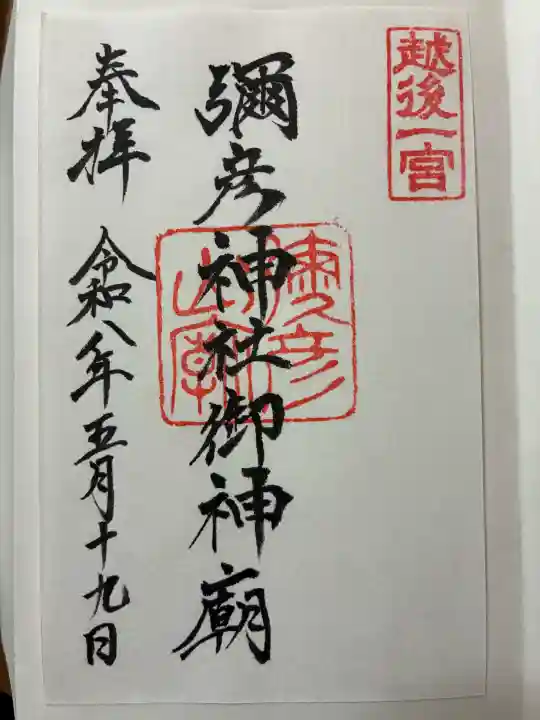 越後一宮
彌彦神社御神廟
奉拝　令和八年五月十九日